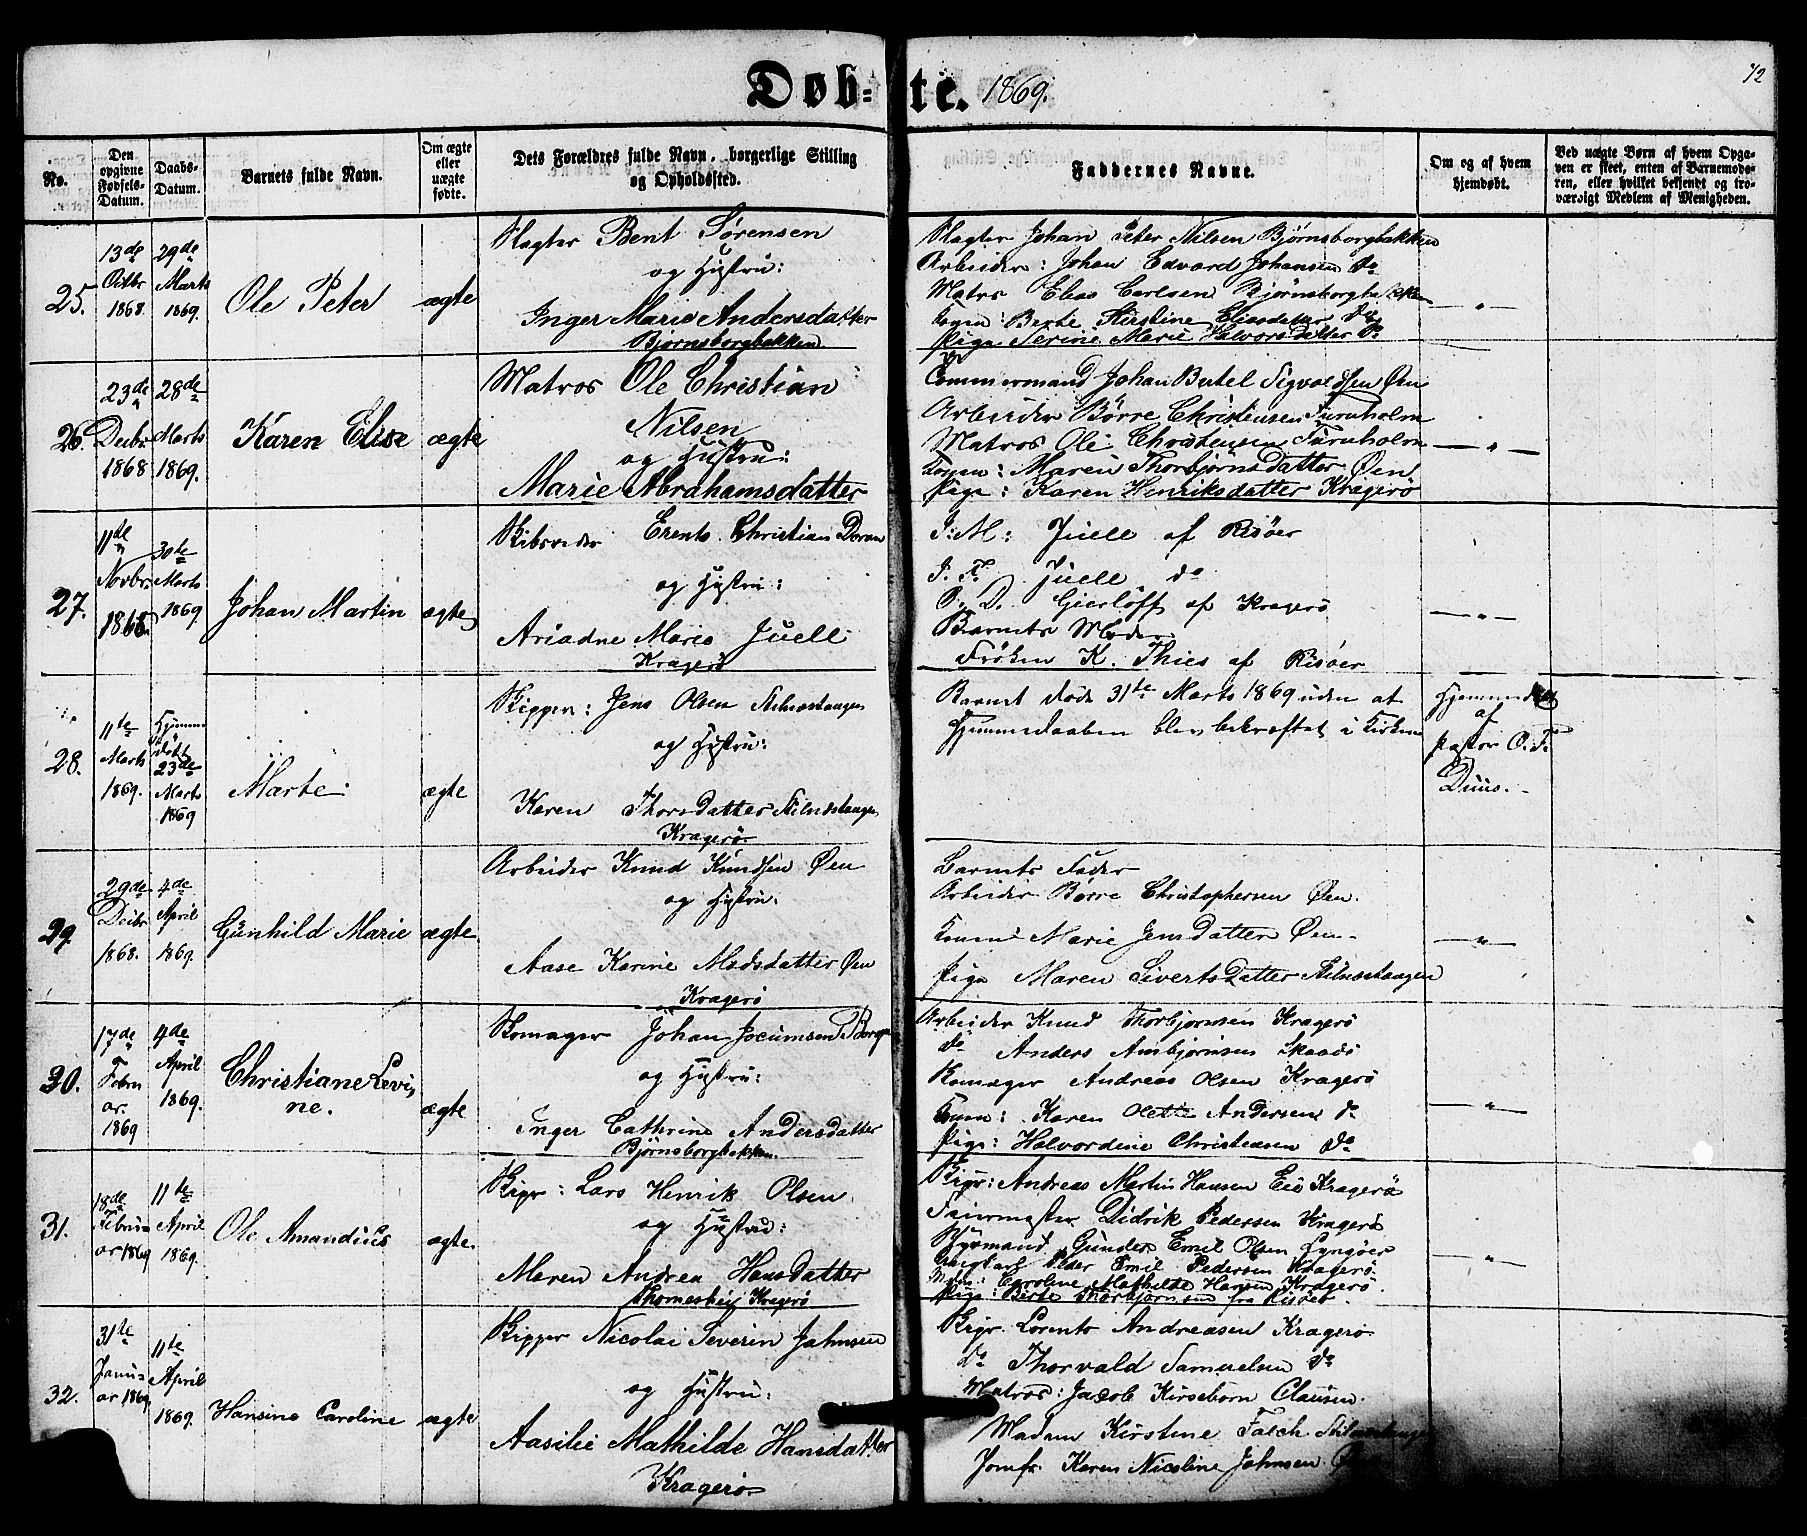 Døb= te. 1869.
No.
Den opgivne Fødsels-Datum.
Daabs-Datum.
Barnets fulde Navn.
Om ægte eller uægte fødte.
Dets Forældres fulde Navn, borgerlige Stilling og Opholdssted.
Faddernes Navne.
Om og af hvem hjemdøbt.
Ved uægte Børn af hvem Opgaven er skeet, enten af Barnemoderen, eller hvilket bekjendt og troværdigt Medlem af Menigheden.
25.
13de
Octbr
1868
29de
Marts
1869.
Ole Peter
ægte
Slagter Bent Sørensen
og Hustru:
Inger Marie Andersdatter
Bjørnsborgbakken
Slagter Johan Peter Nilsen Bjørnsborgbakken
Arbeider: Johan Edvard Johansen do
Matros Elias Carlsen Bjørnsborgbakken
Konen: Berte Kirstine Eliasdatter do
Pige Serine Marie Halvorsdatter do
— " —
26.
23de
Decbr
1868
28de
Marts
1869.
Karen Elise
ægte
Matros Ole Christian
Nilsen
og Hustru:
Marie Abrahamsdatter
Tømmermand Johan Butel Sigvoldsen Øen
Arbeider Børre Christensen Furuholm
Matros Ole Christensen Furuholm
Konen: Maren Thorbjørnsdatter Øen
Pige: Karen Henriksdatter Kragerø
— " —
27.
11te
Novbr
1868
30te
Marts
1869
Johan Martin
ægte
Skibsreder Erents Christian
og Hustru:
Ariadne Marie Juell
Kragerø
J: M: Juell af Risøer
J. F. Juell do
O. D. Gierløff af Kragerø
Barnets Moder
Frøken K. Thies af Risøer
— " —
28.
11te
Marts
1869.
Hjemmedøbt
23de
Marts
1869
Marte
ægte
Skipper: Jens Olsen Stilnestangen
og Hustru:
Karen Thorsdatter Stilnestangen
Kragerø
Barnet døde 31te Marts 1869 uden at
Hjemmedaaben blev bekræftet i Kirken
Hjemmedøbt
af
Pastor O. F.
Duus.
29.
29de
Decbr
1868.
4de
April
1869.
Gunhild Marie
ægte
Arbeider Knud Knudsen Øen
og Hustru:
Aase Karine Madsdatter Øen
Kragerø
Barnets Fader
Arbeider Børre Christophersen Øen.
Konen Marie Jensdatter Øen
Pige Maren Sivertsdatter Stilnestangen
— " —
30.
17de
Febru
ar.
1869
4de
April
1869.
Christiane Levi,
ne.
ægte
Skomager Johan Jocumsen
og Hustru:
Inger Cathrine Andersdatter
Bjørnsborgbakken.
Arbeider Knud Thorbjørnsen Kragerø
do Anders Ambjørnsen Skaadø
Skomager Andreas Olsen Kragerø
Konen: Karen Olette Andersen do
Pige: Halvordine Christensen do
— " —
31.
18de
Februar
ar 1869
11te
April
1869.
Ole Amandius
ægte.
Skipr: Lars Henrik Olsen
og Hustru:
Maren Andrea Hansdatter
Thomesberg Kragerø
Skipr: Andreas Martin Hansen Eie Kragerø
Feiermester Didrik Pedersen Kragerø
Styrmand Gunder Emil Olsen Lyngøer
Ungkarl Peder Emil Pedersen Kragerø
Caroline Mathilde Hansen Kragerø.
Pige: Berte Thorbjørnsend fra Risøer
— " —
32.
31te
Janu=
ar 1869
11te
April
1869.
Hansine Caroline
ægte
Skipper Nicolai Severin Johnsen
og Hustru:
Aasilie Mathilde Hansdatter
Kragerø
Skipr. Lorents Andreasen Kragerø
do Thorvald Samuelsen do
Matros: Jacob Kirsebom Clausen.
Madam Kirstine Falch Stilnestangen
Jomfr. Karen Nicoline Johnsen